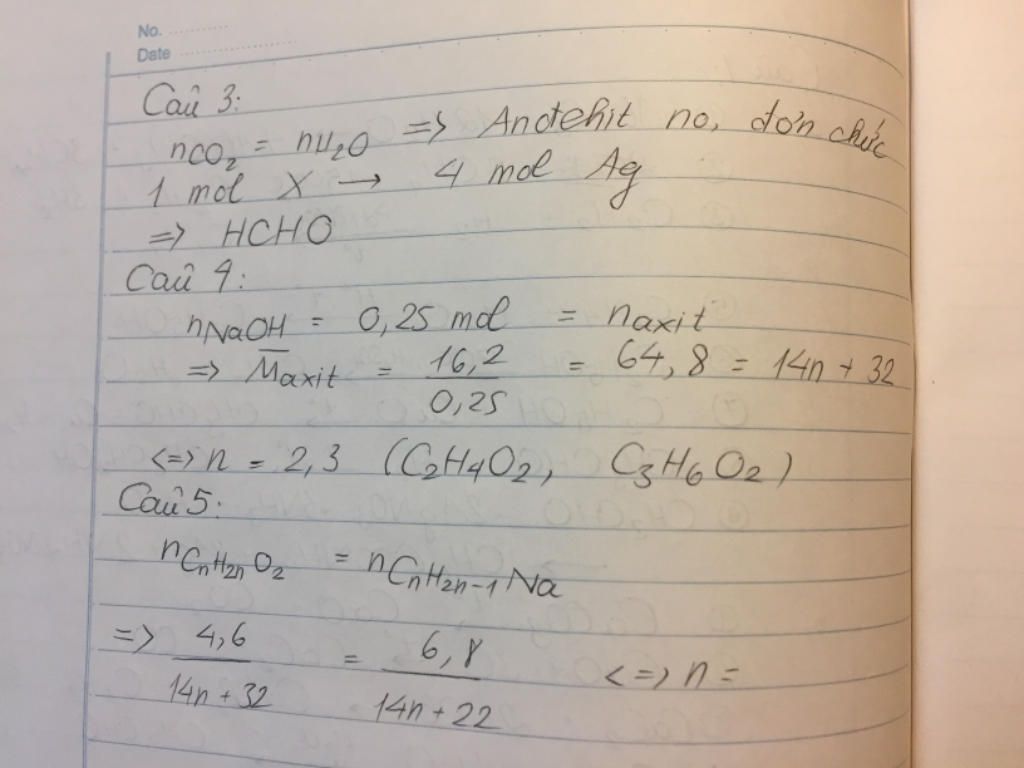 No.
Date
Câu 3:
nCO2 = nH2O => Anđehit no, đơn chức
1 mol X → 4 mol Ag
=> HCHO
Câu 4:
nNaOH = 0,25 mol = naxit
=> M̅axit = 16,2 / 0,25 = 64,8 = 14n + 32
<=> n = 2,3 (C2H4O2, C3H6O2)
Câu 5:
nCnH2nO2 = nCnH2n-1Na
=> 4,6 / 14n + 32 = 6,8 / 14n + 22 <=> n =